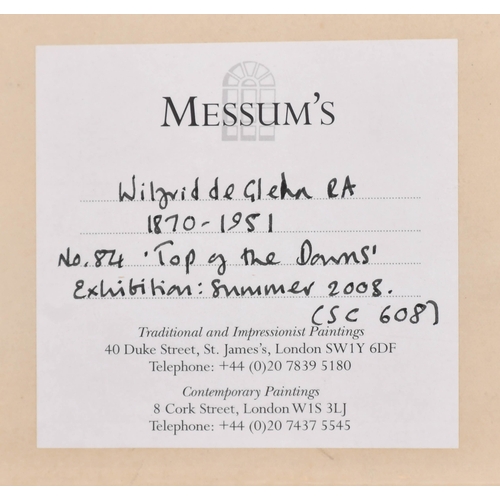 MESSUM'S
Wilfrid de Glehn RA
1870-1951
No. 84 'Top of the Downs'
Exhibition: Summer 2008.
(SC 608)
Traditional and Impressionist Paintings
40 Duke Street, St. James's, London SW1Y 6DF
Telephone: +44 (0)20 7839 5180
Contemporary Paintings
8 Cork Street, London W1S 3LJ
Telephone: +44 (0)20 7437 5545